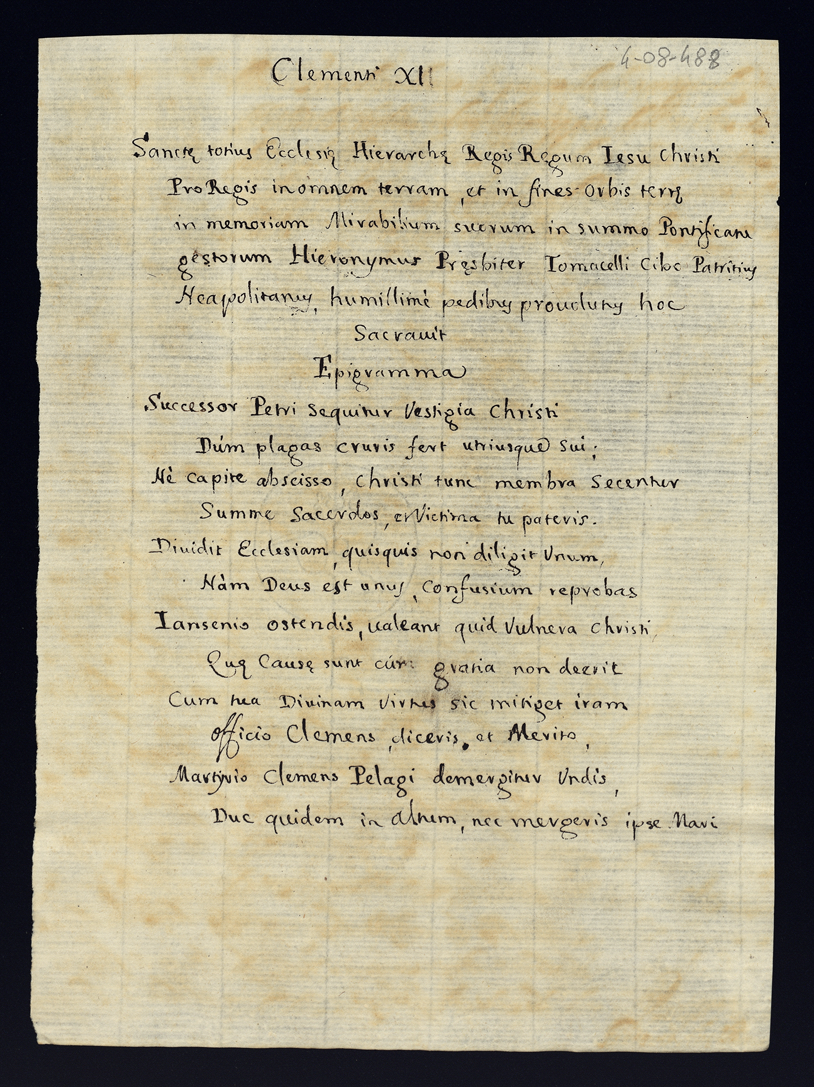 4-08-488
Clementi XII
Sanctę totius Ecclesię Hierarchę Regis Regum Iesu Christi
ProRegis in omnem terram, et in fines Orbis terrę
in memoriam Mirabilium suorum in summo Pontificatu
gestorum Hieronymus Pręsbiter Tomacelli Cibo Patritius
Neapolitanus, humillimè pedibus prouolutus hoc
Sacrauit
Epigramma
Successor Petri sequitur Vestigia Christi
Dùm plagas cruris fert utriusque sui;
Nè capite abscisso, Christi tunc membra Secentur
Summe Sacerdos, et Victima tu pateris.
Diuidit Ecclesiam, quisquis non diligit Vnum,
Nàm Deus est unus, Confusium reprobas
Iansenio ostendis, ualeant quid Vulnera Christi,
Quę Causę sunt cùr gratia non deerit
Cum tua Diuinam Virtus sic mitiget iram
officio Clemens, diceris, et Merito,
Martyrio Clemens Pelagi demergitur Vndis,
Duc quidem in altum, nec mergeris ipse Navi